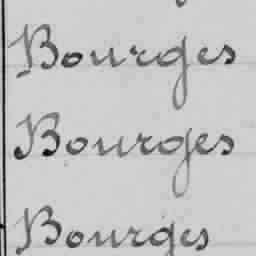 Bourges
Bourges
Bourges